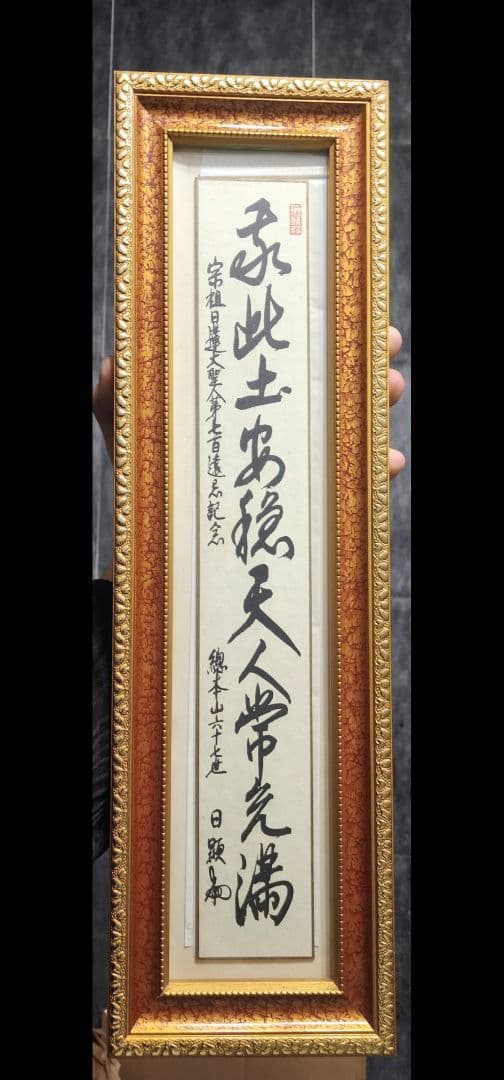 我此土安穏天人常充満
宗祖日蓮大聖人第七百遠忌記念
總本山六十七世 日顯